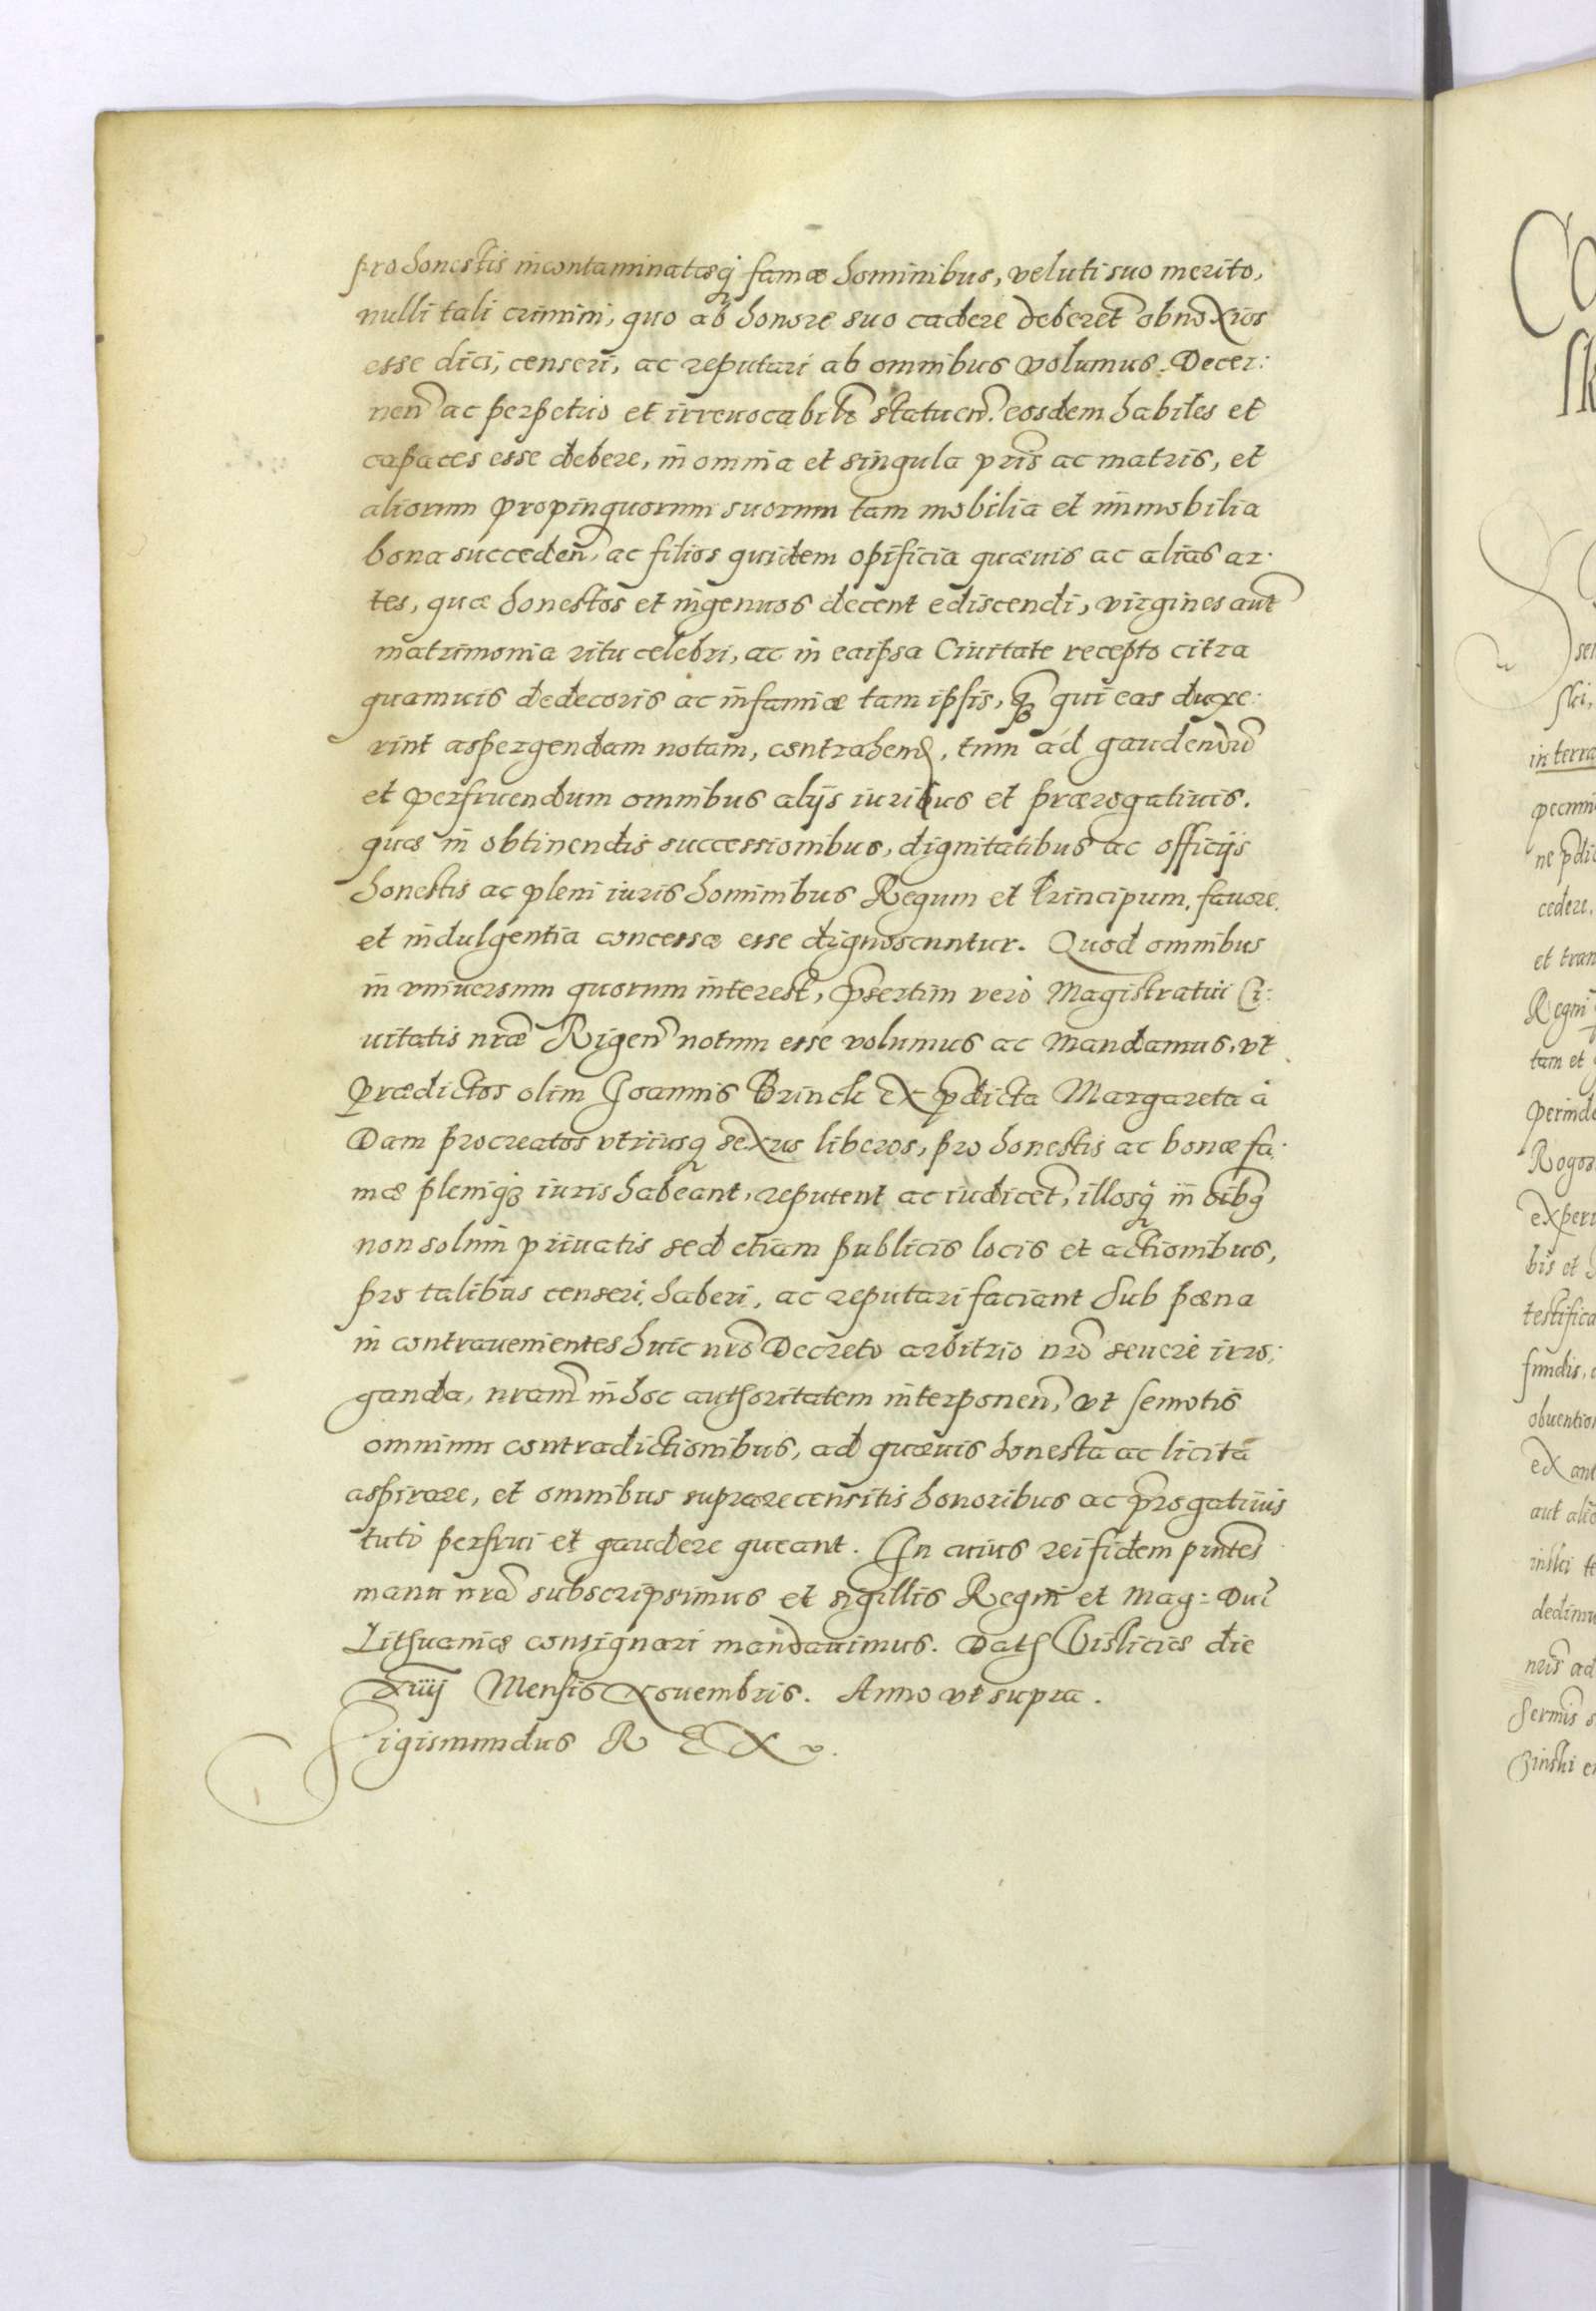 pro honestis incontaminatæq famæ hominibus, veluti suo merito,
nulli tali crimini, quo ab honore suo cadere deberet̃ obnoxios
esse dici, censeri, ac reputari ab omnibus volumus. Decer:
neñ ac perpetuo et irreuocabilr̃ statueñ. eosdem habiles et
capaces esse debere, in omnia et singula pr̃is ac matris, et
aliorum propinquorum suorum tam mobilia et immobilia
bona succedeñ, ac filios quidem opificia quæuis ac alias ar.
tes, quæ honestos et ingenuos decent ediscendi, virgines aut̃
matrimonia ritu celebri, ac in eaipsa Ciuitate recepto citra
quamuis dedecoris ac infamiæ tam ipsis, qui eas duxe:
rint aspergendam notam, contrahend, tum ad gaudendũ
et perfruendum omnibus alijs iuribus et prærogatiuis.
quæ in obtinendis successionibus, dignitatibus ac officijs
honestis ac pleni iuris hominibus Regum et Principum, fauore,
et indulgentia concessæ esse dignoscuntur. Quod omnibus
in vniuersum quorum interest, p̃sertim verò Magistratui Ci:
uitatis nr̃æ Rigeñ notum esse volumus ac mandamus, vt
Prædictos olim Ioannis Brinck ex p̃dicta Margareta à
Dam procreatos vtriusq sexus liberos, pro honestis ac bonæ fa.
mæ pleniq iuris habeant, reputent ac iudicet̃, illosq in õibq
non solum priuatis sed etiam publicis locis et actionibus,
pro talibus censeri, haberi, ac reputari faciant sub pæna
in contrauenientes huic nr̃o Decreto arbitrio nr̃o seuerè irro:
ganda, nr̃am in hoc authoritatem interponeñ, vt semotis
omnium contradictionibus, ad quæuis honesta ac licita
aspirare, et omnibus suprarecensitis honoribus ac p̃rogatiuis
tutò perfrui et gaudere queant. In cuius rei fidem pñtes
manu nr̃a subscripsimus et sigillis Regni et Mag: Du:
Lithuaniæ consignari mandauimus. Dat Visliciæ die
xiiij Mensis Nouembris. Anno vt supra.
Sigismundus REX.